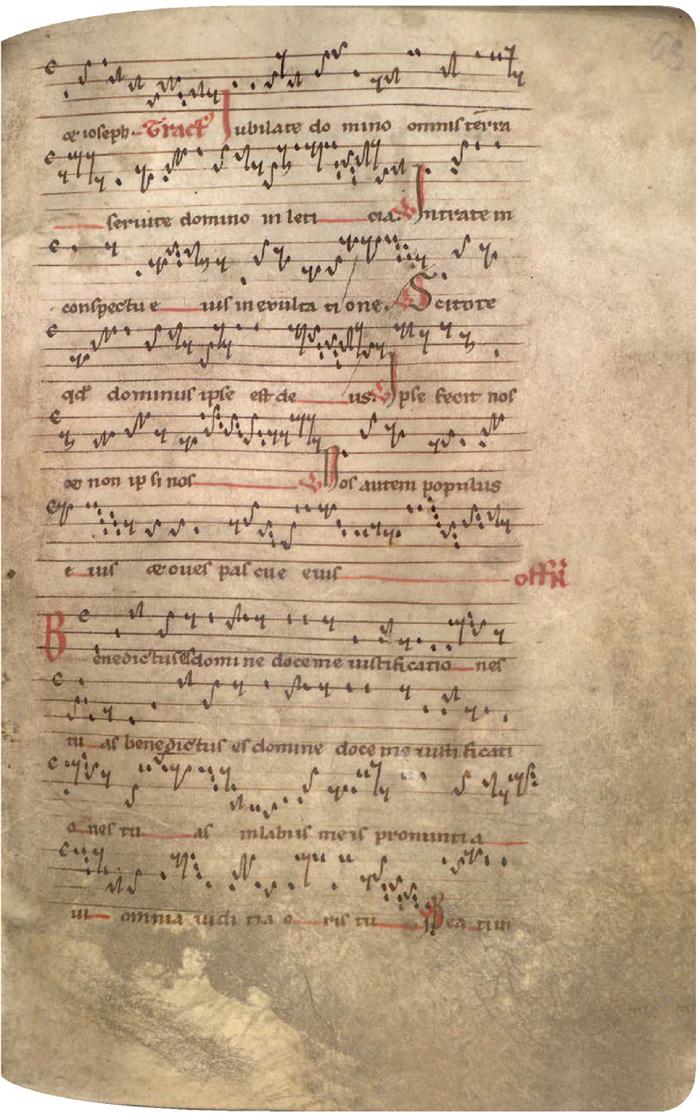 63
⁊ ioseph. Tract Iubilate do mino omnis terra
seruite domino in leti cia. Intrate in
conspectu e ius in exulta ti one. Scitote
qd dominus ipse est de us. Ipse fecit nos
⁊ non ip si nos Nos autem populus
e ius ⁊ oues pas cue eius offr
Benedictus es domi ne doce me iustificatio nes
tu as benedictus es domine doce me iustificati
o nes tu as in labiis meis pronunti a
ui omnia iudi cia o ris tu Bea tim